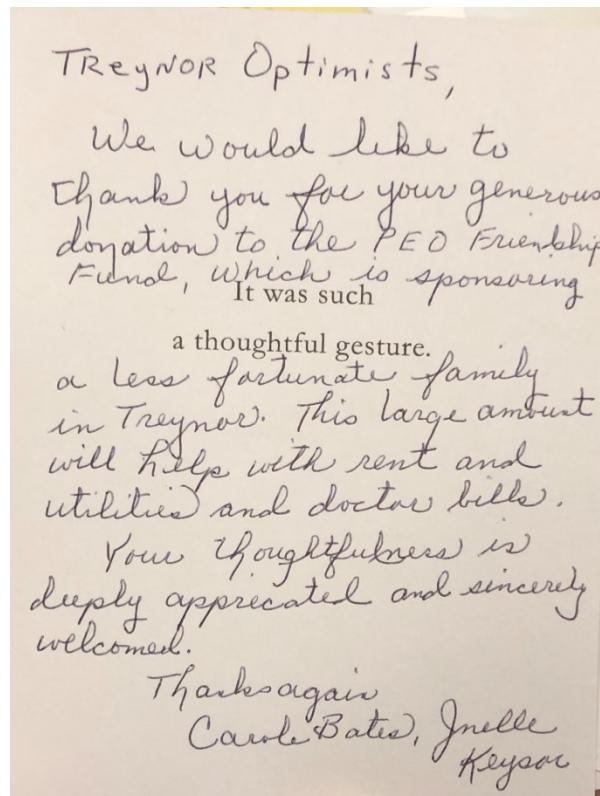 Treynor Optimists,
We would like to
thank you for your generous
donation to the PEO Friendship
Fund, which is sponsoring
It was such
a thoughtful gesture.
a less fortunate family
in Treynor. This large amount
will help with rent and
utilities and doctor bills.
Your thoughtfulness is
deeply apprecated and sincerely
welcomed.
Thanks again
Carole Bates, Jnelle
Keysor